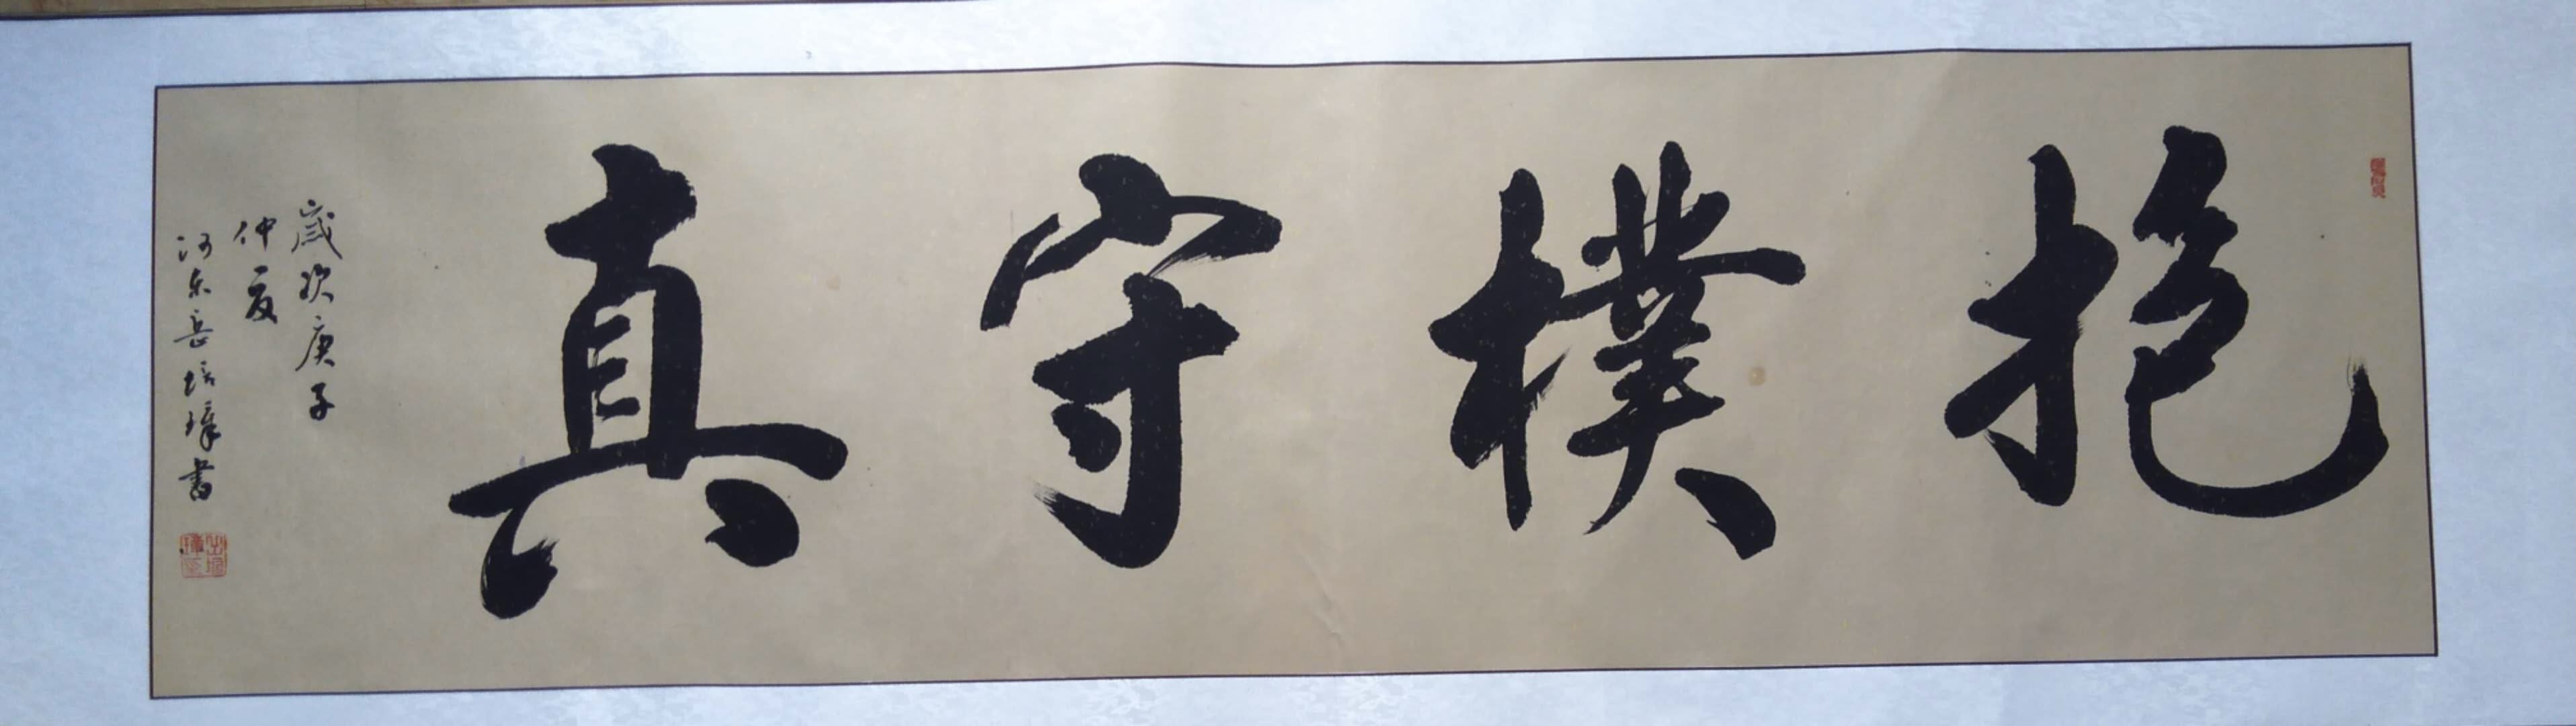 抱樸守真
歲次庚子
仲夏
河东岳培璋書